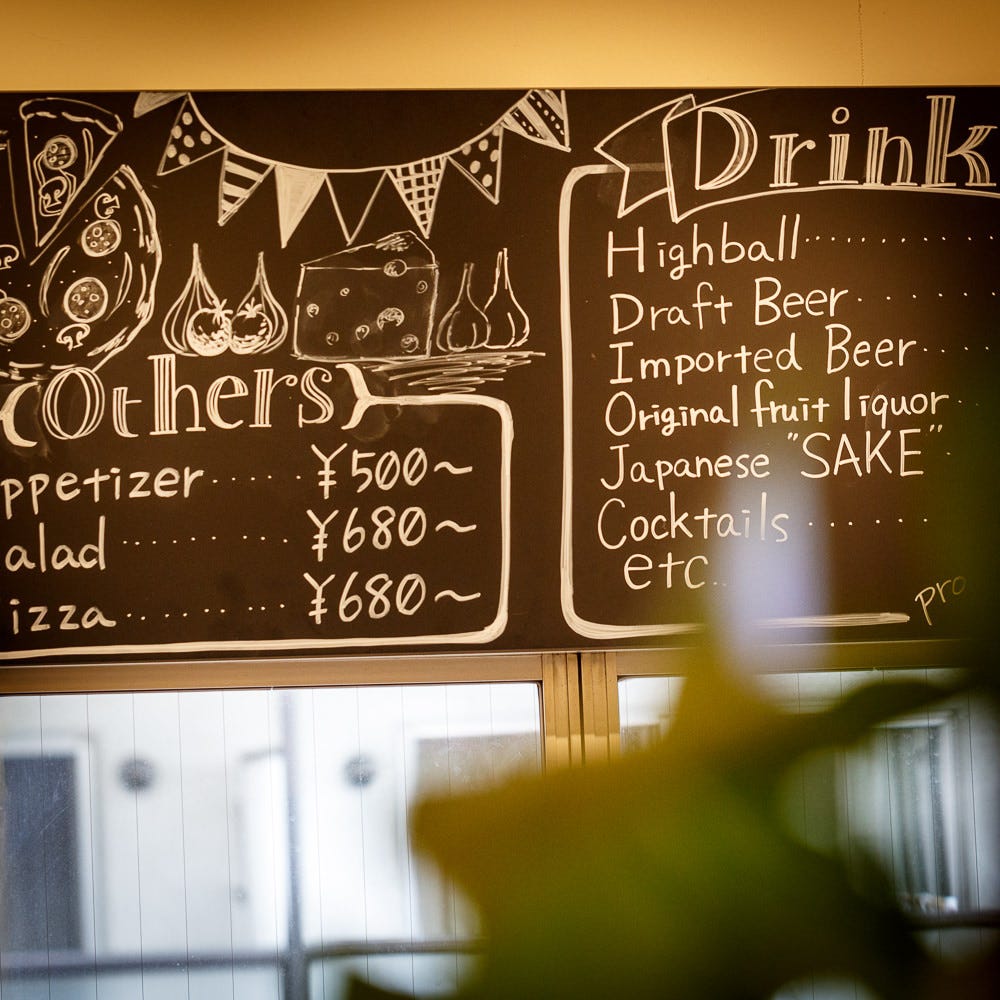 Others
ppetizer ...... ¥500~
alad ............ ¥680~
izza ............ ¥680~
Drink
Highball ............
Draft Beer ........
Imported Beer ....
Original fruit liquor .
Japanese "SAKE" .
Cocktails .......
etc...
pro